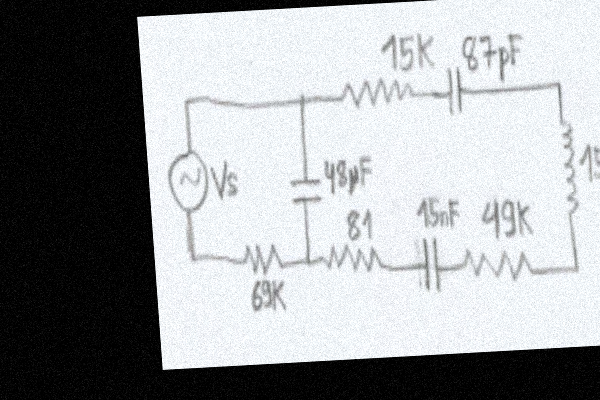 15K 87pF
Vs
48µF
81 15nF 49K
69K